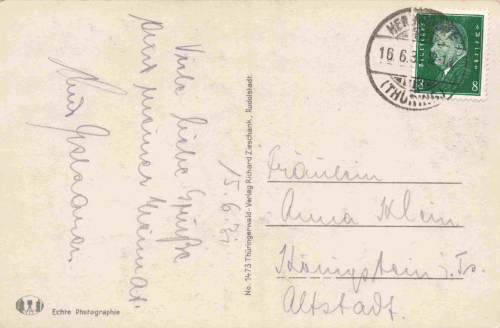 Viele liebe Grüße
aus meiner Heimat.
15.6.31
No. 1473 Thüringerwald-Verlag Richard Zieschank, Rudolstadt.
Echte Photographie
16.6.3
(THÜR
8 8
Fräulein
Anna Klein
Königstein i. Ts.
Altstadt.